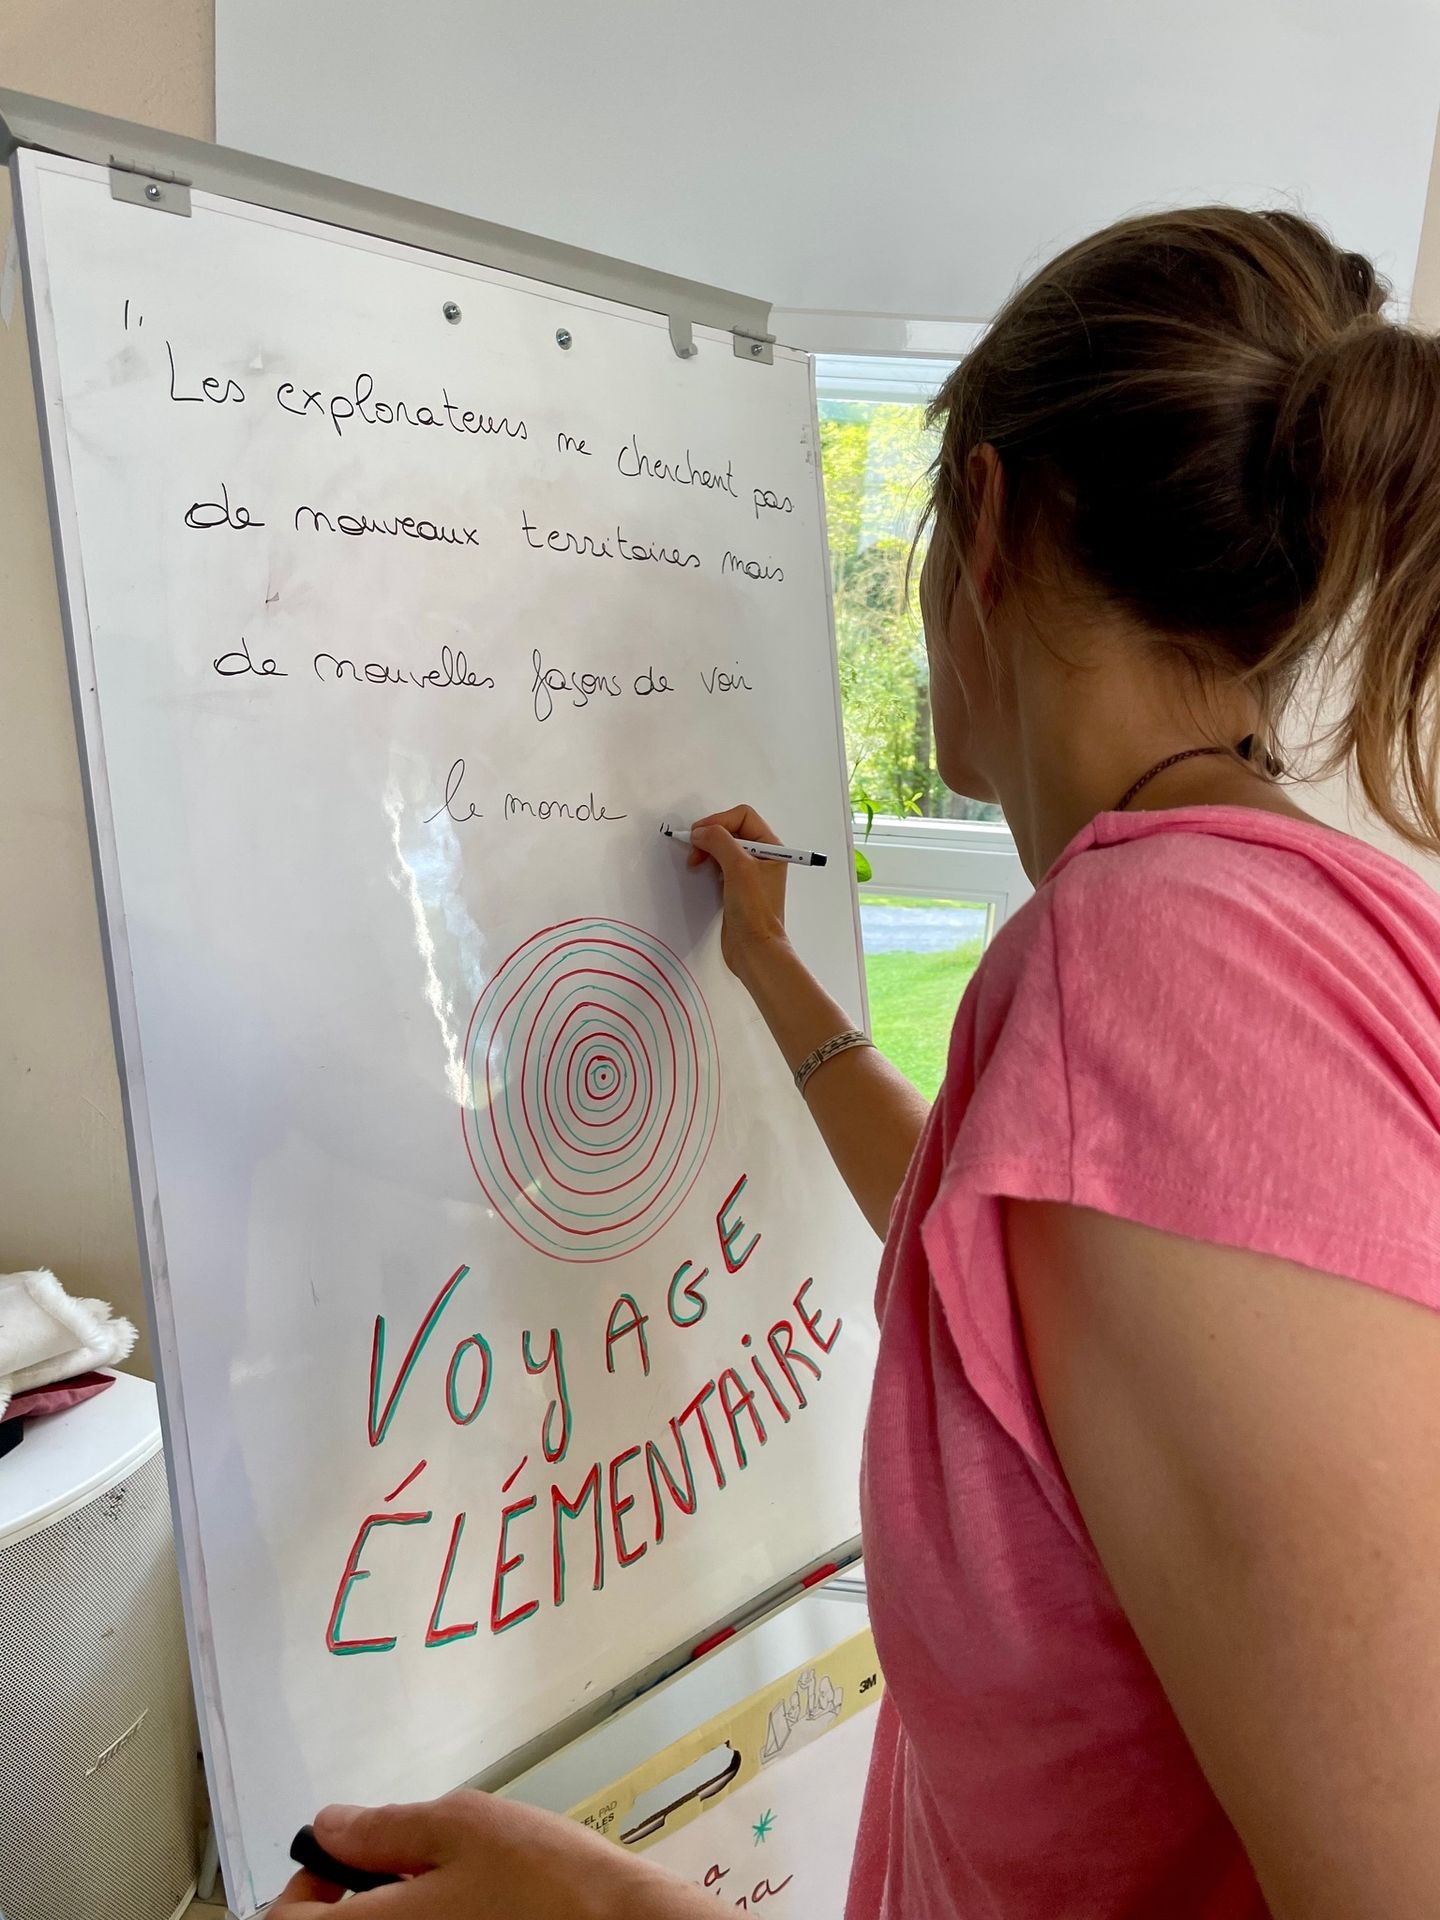 "Les explorateurs ne cherchent pas
de nouveaux territoires mais
de nouvelles façons de voir
le monde "
VOYAGE
ÉLÉMENTAIRE
3M